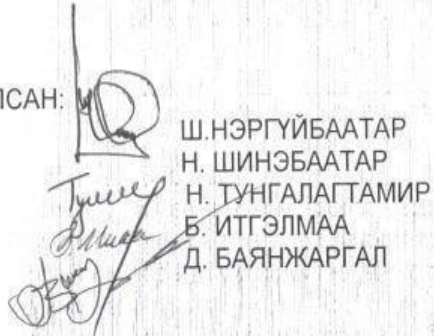 ЛСАН:
Ш.НЭРГҮЙБААТАР
Н. ШИНЭБААТАР
Н. ТУНГАЛАГТАМИР
Б. ИТГЭЛМАА
Д. БАЯНЖАРГАЛ